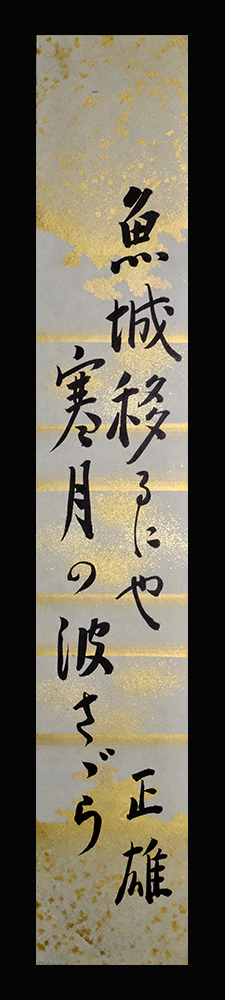 魚城移るにや
寒月の波さゞら
正雄